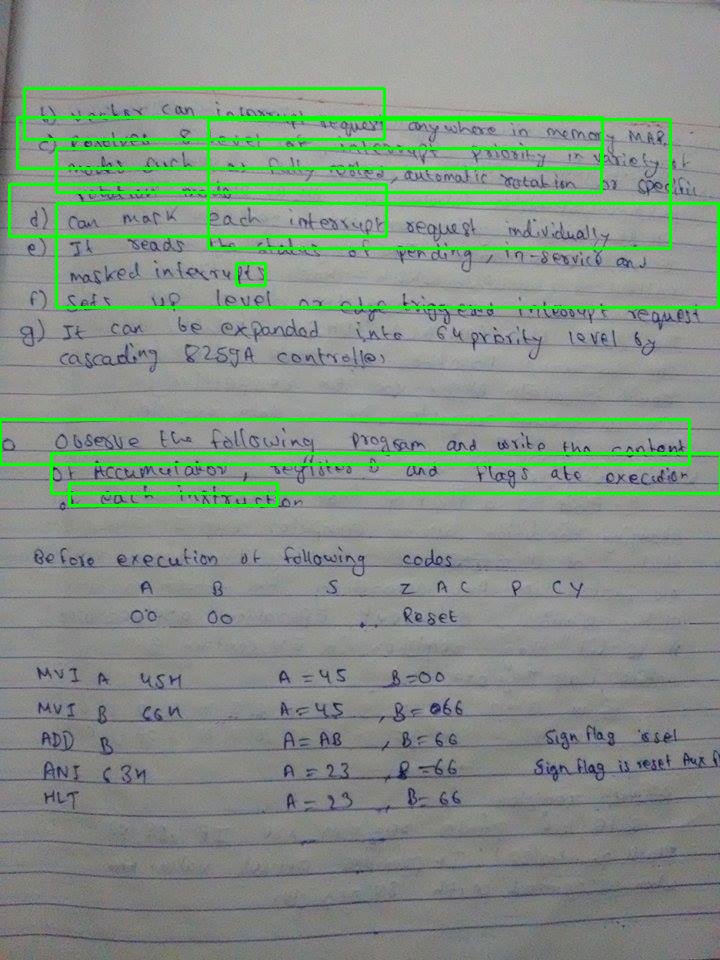 b) Vector can interrupt request anywhere in memory MAP.
c) resolves 8 level of interrupt priority in variety of
modes such as fully nested, automatic rotation or specific
rotation mode
d) Can mask each interrupt request individually
e) It reads the status of pending, in-service and
masked interrupts
f) Sets up level or edge triggered interrupt request
g) It can be expanded into 64 priority level by
cascading 8259A controller
Observe the following program and write the content
of Accumulator, register B and flags ate execution
of each instruction
Before execution of following codes.
A B S Z AC P CY
00 00 Reset
MVI A 45H A = 45 B = 00
MVI B 66H A = 45 , B = 066
ADD B A = AB , B = 66 Sign flag is set
ANI 63H A = 23 , B = 66 Sign flag is reset Aux
HLT A = 23 , B = 66